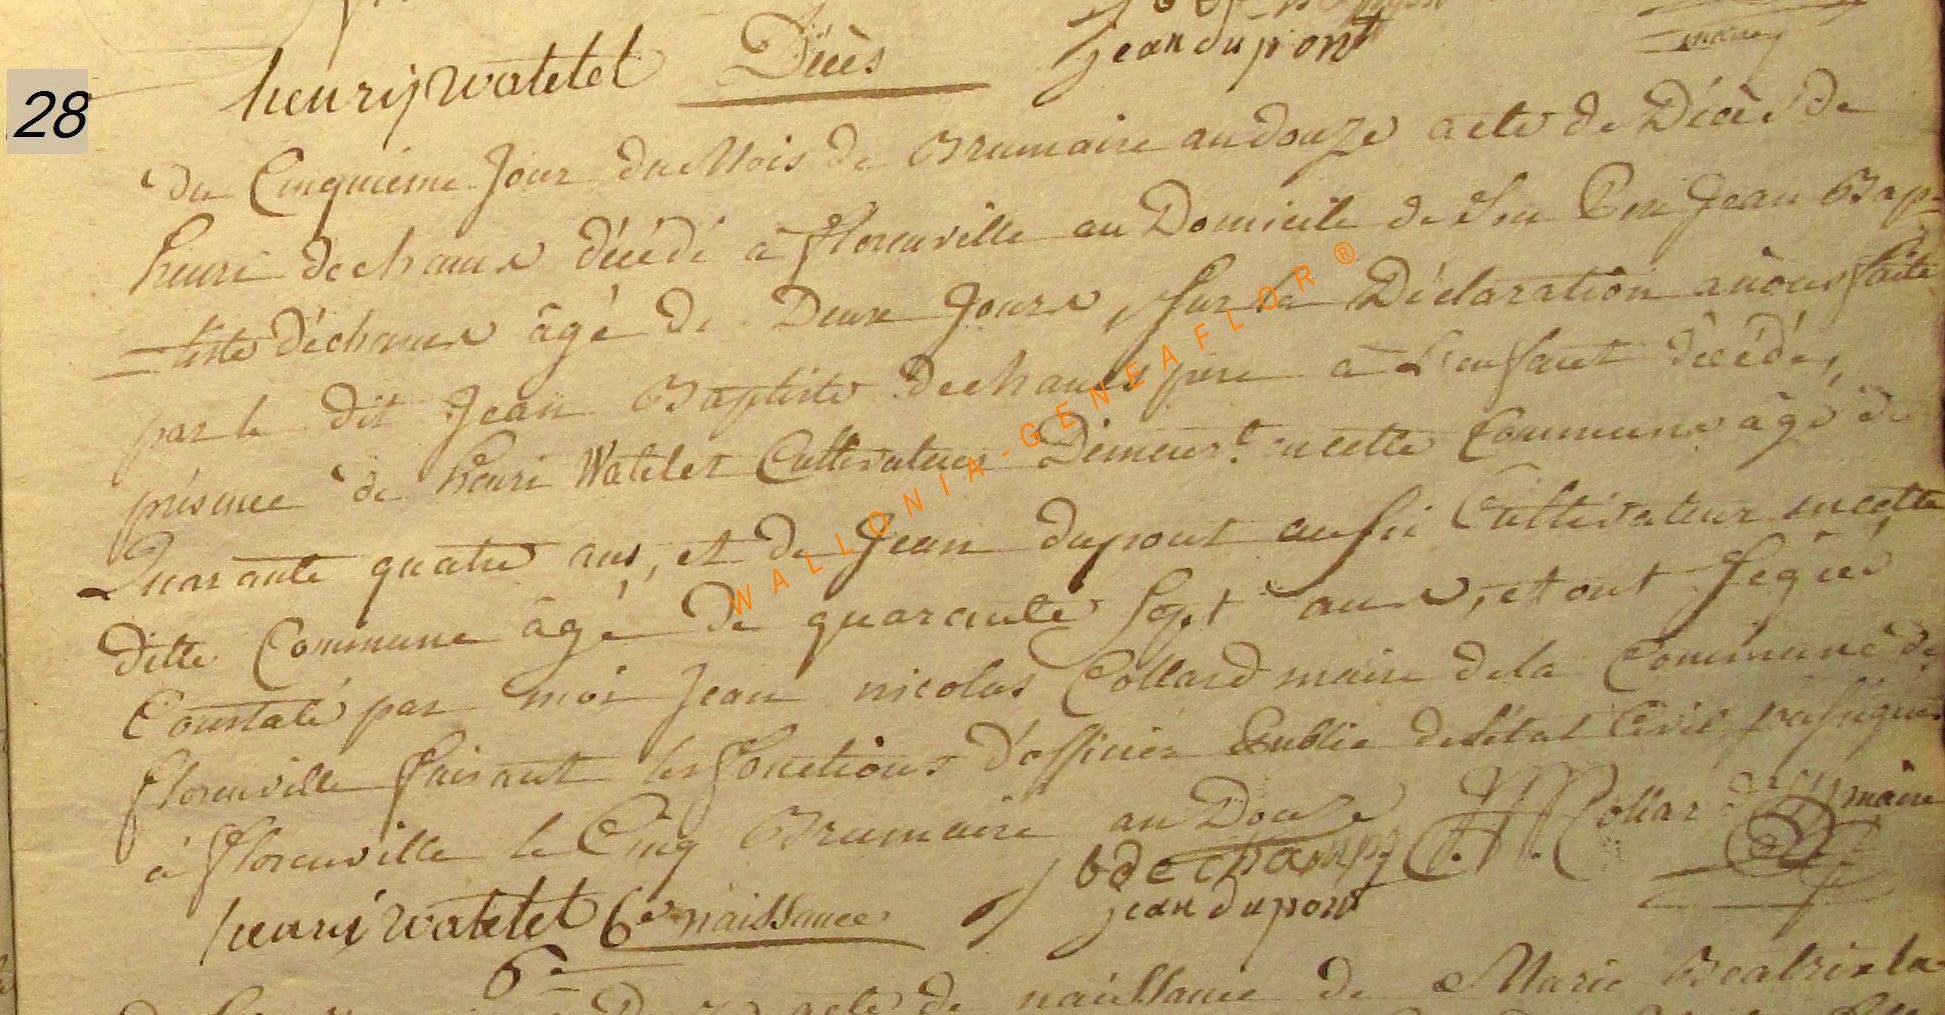 henrij watelet Décès
jean dupont
maire
28
Du Cinquieme Jour du Mois de Brumaire an douze acte de Décès de
henri dechamps décédé à florenville au Domicile de Son Pere Jean Bap=
=tiste déchamps âgé de Deux Jours, Sur la Déclaration a nous faite
par le dit Jean Baptiste dechamps pere à L'enfant décédé,
présence de henri Watelet Cultivateur Demeurt. en cette Commune âgé de
Quarante quatre ans, et de Jean dupont aussi Cultivateur en cette
ditte Commune âgé de quarante Sept ans, et ont Signé
Constaté par moi Jean nicolas Collard maire de la Commune de
florenville faisant les fonctions d'officier Public de l'état Civil,
à florenville le Cinq Brumaire an Douze
J b dechamps J. N. Collard maire
henri watelet 6e naissance jean dupont
6e
acte de naissance de Marie Beatrix la
WALLONIA-GENEAFLOR®